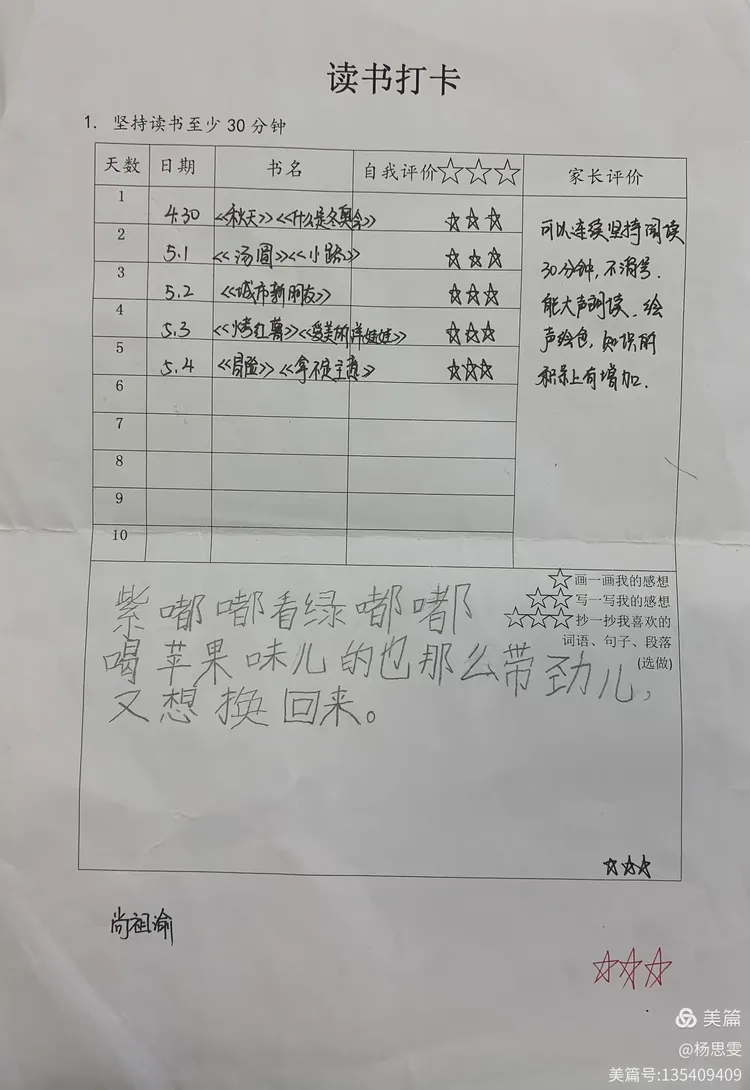 读书打卡
1. 坚持读书至少30分钟
天数 日期 书名 自我评价☆☆☆ 家长评价
1 4.30 《秋天》《什么是冬奥会》 ☆☆☆
2 5.1 《汤圆》《小路》 ☆☆☆
3 5.2 《城市新朋友》 ☆☆☆
4 5.3 《烤红薯》《爱美的洋娃娃》 ☆☆☆
5 5.4 《冒险》《拿不定主意》 ☆☆☆
6
7
8
9
10
可以连续坚持阅读
30分钟,不滑号.
能大声朗读、绘
声绘色,知识的
积累上有增加.
☆画一画我的感想
☆☆写一写我的感想
☆☆☆抄一抄我喜欢的
词语、句子、段落
(选做)
紫嘟嘟看绿嘟嘟
喝苹果味儿的也那么带劲儿,
又想换回来。
☆☆☆
尚祖渝
☆☆☆
美篇
@杨思雯
美篇号:135409409